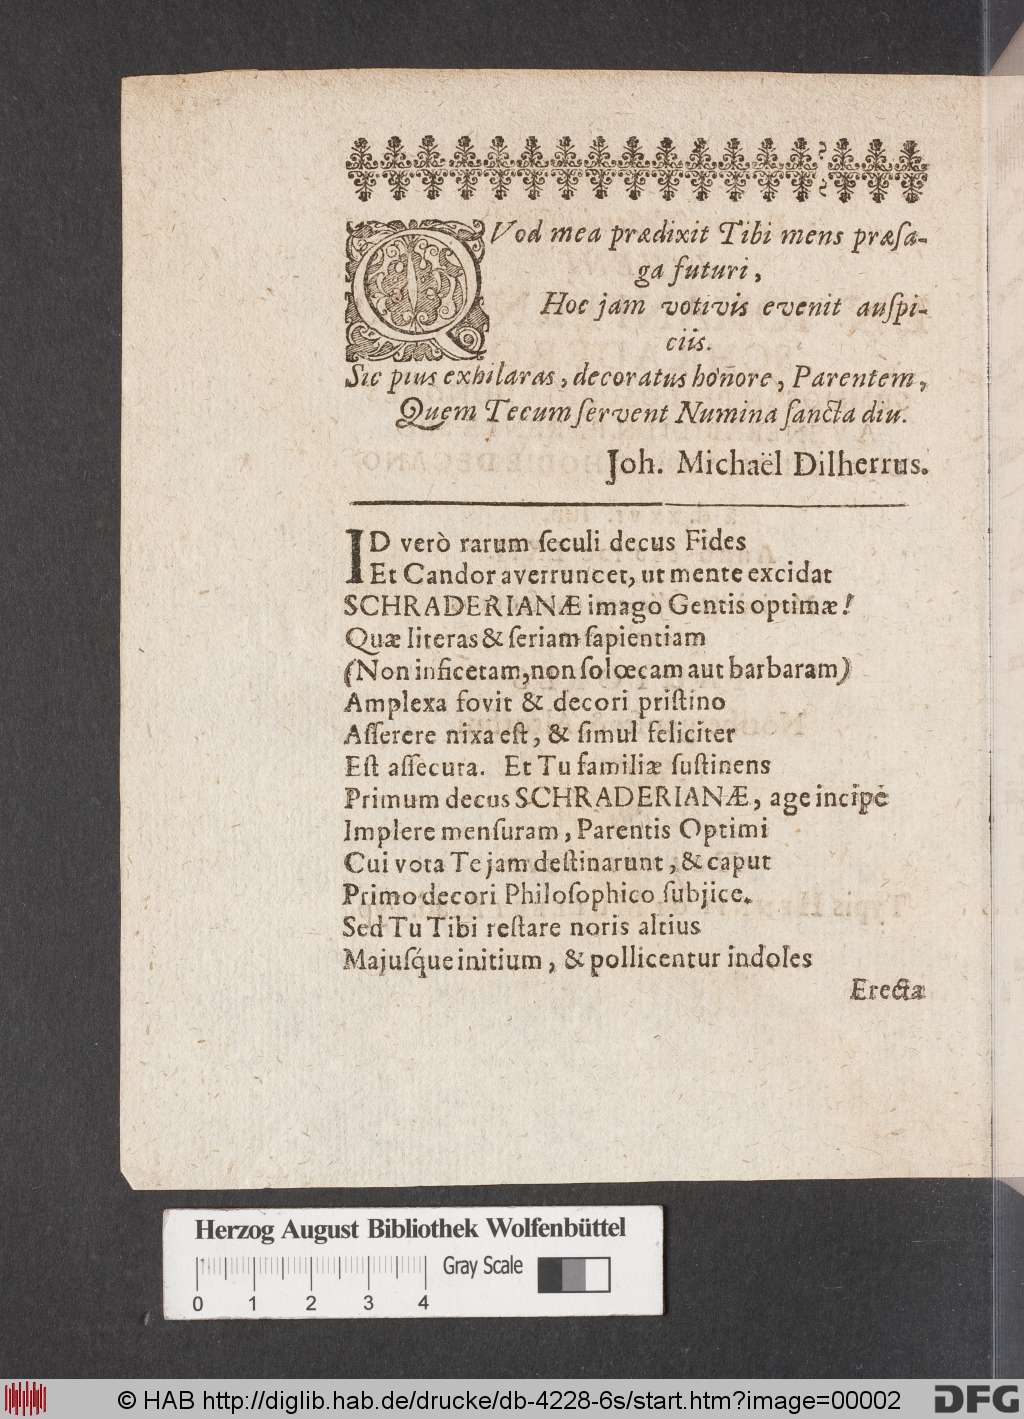 QVod mea prædixit Tibi mens præſa-
ga futuri,
Hoc jam votivis evenit auſpi-
ciis.
Sic pius exhilaras, decoratus honore, Parentem,
Quem Tecum ſervent Numina ſancta diu.
Joh. Michaël Dilherrus.
ID verò rarum ſeculi decus Fides
Et Candor averruncet, ut mente excidat
SCHRADERIANÆ imago Gentis optimæ!
Quæ literas & ſeriam ſapientiam
(Non inficetam, non ſolœcam aut barbaram)
Amplexa fovit & decori priſtino
Aſſerere nixa eſt, & ſimul feliciter
Eſt aſſecuta. Et Tu familiæ ſuſtinens
Primum decus SCHRADERIANÆ, age incipe
Implere menſuram, Parentis Optimi
Cui vota Te jam deſtinarunt, & caput
Primo decori Philoſophico ſubjice.
Sed Tu Tibi reſtare noris altius
Majuſq́ue initium, & pollicentur indoles
Erectæ
Herzog August Bibliothek Wolfenbüttel
Gray Scale
0 1 2 3 4
© HAB http://diglib.hab.de/drucke/db-4228-6s/start.htm?image=00002
DFG